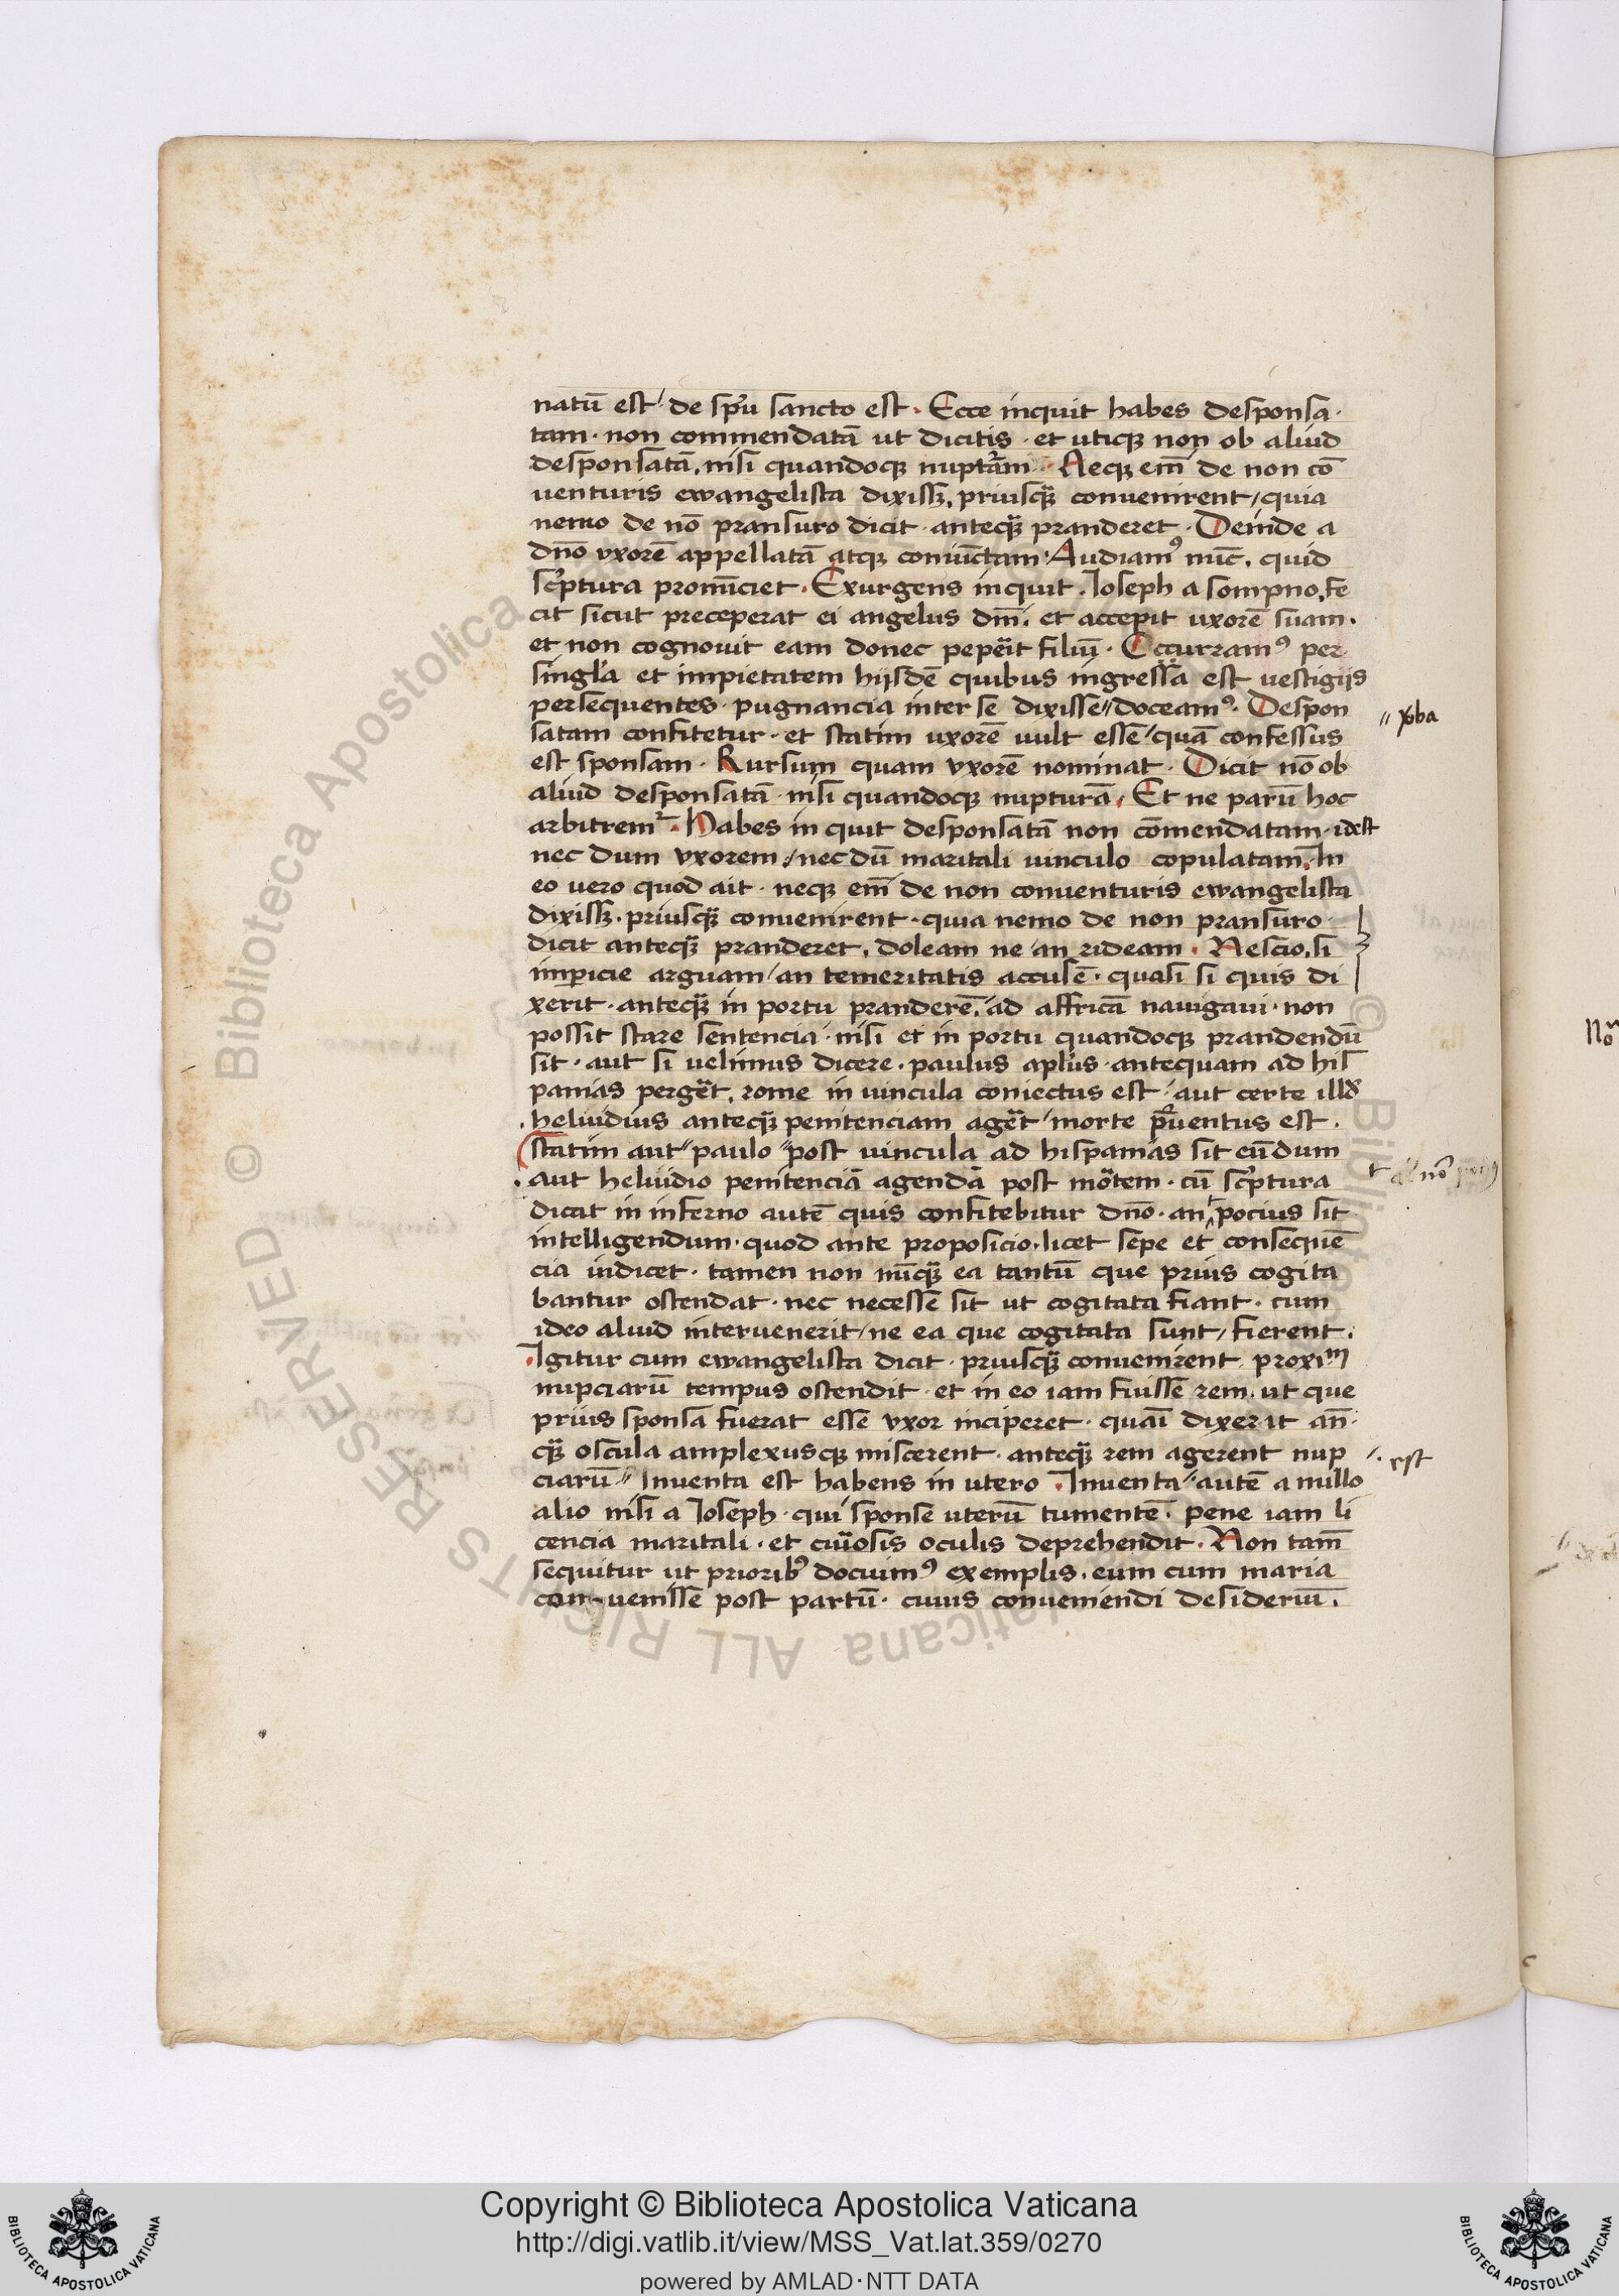 natū est / de sp̄u sancto est . Ecce inquit habes desponsa·
tam · non commendatā ut dicitis · et utiqꝫ non ob aliud
desponsatā , nisi quandoqꝫ nupturam · Neqꝫ em̄ de non cō
venturis ewangelista dixissꝫ , priusqꝫ̄ convenirent / quia
nemo de nō pransuro dicit · anteqꝫ̄ pranderet · Deinde a
dn̄o vxorē appellatā atqꝫ coniūctam · Audiamꝰ nūc , quid
sc̄ptura pronūciet . Exurgens inquit . Ioseph a sompno , fe
cit sicut preceperat ei angelus dn̄i . et accepit uxorē suam .
et non cognovit eam donec pepe̅it filiū · Occurramꝰ per
singl̄a et impietatem hijsdē quibus ingressa est uestigijs
persequentes · pugnancia inter se dixisse " doceamꝰ . Despon
satam confitetur · et statim uxorē uult esse / quā confessus
est sponsam · Rursum quam vxorē nominat · Dicit nō ob
aliud desponsatā · nisi quandoqꝫ nupturā . Et ne parū hoc
arbitremr̄ . Habes in quit desponsatā non cōmendatam · idest
nec dum vxorem , / nec dū maritali uinculo copulatam . In
eo uero quod ait · neqꝫ em̄ de non conventuris ewangelista
dixissꝫ . priusqꝫ̄ convenirent · quia nemo de non pransuro ·
dicit anteqꝫ̄ pranderet , doleam ne / an rideam . Nescio , si
imꝑicie arguam / an temeritatis accusē · quasi si quis di
xerit · anteqꝫ̄ in portu pranderē , / ad affricā nauigaui · non
possit stare sentencia · nisi et in portu quandoqꝫ prandendū
sit · aut si uelimus dicere . paulus apl̄us · antequam ad his
panias perge̅t , rome in uincula coniectus est , / aut certe illd̄
. heluidius anteqꝫ̄ penitenciam age̅t / morte p̄ventus est .
statim aut " paulo " post uincula ad hispanias sit eūdum
. aut heluidio penitenciā agendā post mo̅tem · cū sc̄ptura
dicat in inferno autē quis confitebitur dn̄o · an pocius sit
intelligendum · quod ante proposicio , licet sepe et consequē
cia iudicet · tamen non nūqꝫ̄ ea tantū que prius cogita
bantur ostendat · nec necesse sit ut cogitata fiant · cum
ideo aliud intervenerit / ne ea que cogitata sunt / fierent .
. Igitur cum ewangelista dicit · priusqꝫ̄ convenirent , proximum
nupciarū tempus ostendit · et in eo iam fuisse rem , ut que
prius sponsa fuerat esse vxor inciperet · quasi dixerit an̄·
qꝫ̄ oscula amplexusqꝫ miscerent · anteqꝫ̄ rem agerent nup
ciarū " Inventa est habens in utero . Inventa " autē a nullo
alio nisi a Ioseph · qui sponse uterū tumentē . pene iam li
cencia maritali . et cu̅iosis oculis deprehendit . Non tam̄
sequitur ut prioribꝰ docuimꝰ exemplis . eum cum maria
con uenisse post partū · cuius conveniendi desideriū .
" ꝓba
" . est
Copyright © Biblioteca Apostolica Vaticana
http://digi.vatlib.it/view/MSS_Vat.lat.359/0270
powered by AMLAD·NTT DATA
BIBLIOTECA APOSTOLICA VATICANA
BIBLIOTECA APOSTOLICA VATICANA
© Biblioteca Apostolica Vaticana ALL RIGHTS RESERVED